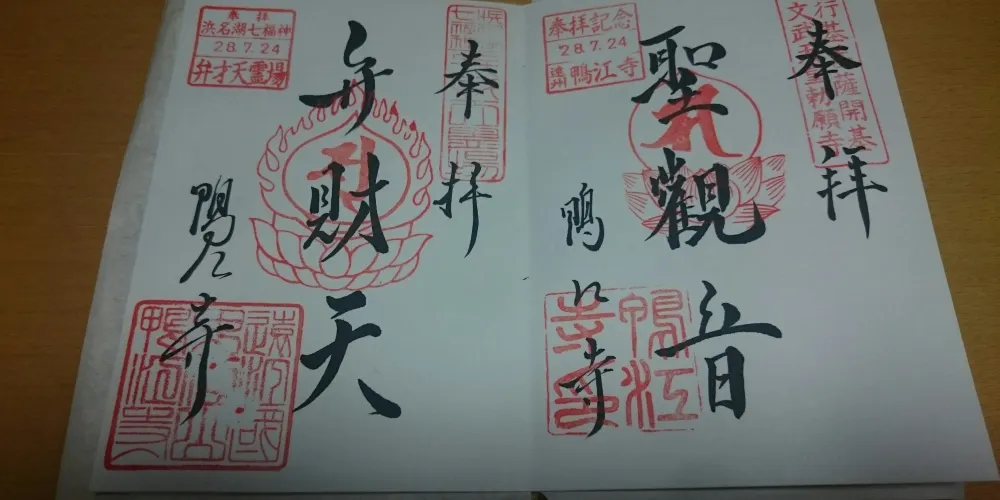 行基菩薩開基
文武天皇勅願寺
奉拝
聖觀音
奉拝記念
28.7.24
遠州 鴨江寺
鴨江寺
鴨江寺印
奉拝
弁財天
奉拝
浜名湖七福神
28.7.24
弁才天霊場
鴨江寺